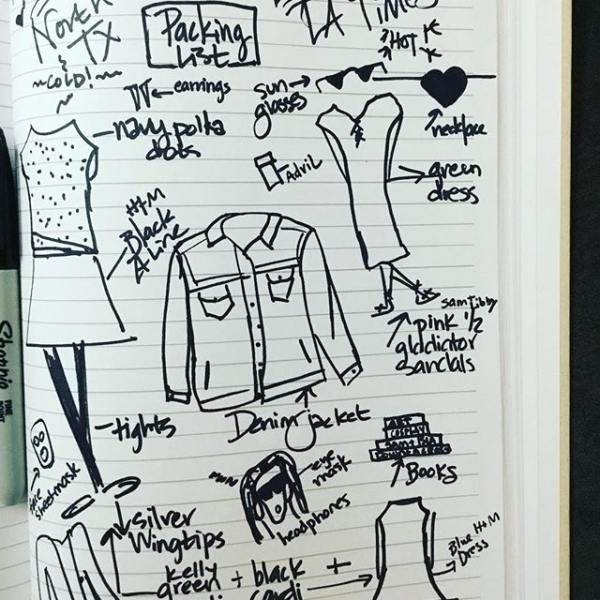 North
TX
~COLD!~
Packing
List
LA Times
HOT
earrings
sun
glasses
necklace
navy polka
dots
Advil
green
dress
H+M
Black
A Line
Sam Tibby
pink 1/2
gladiator
sandals
Sharpie
FINE
POINT
tights
Denim jacket
ART
Books
sheet mask
eye
mask
headphones
silver
Wingtips
kelly
green + black +
cardi
Blue H+M
Dress